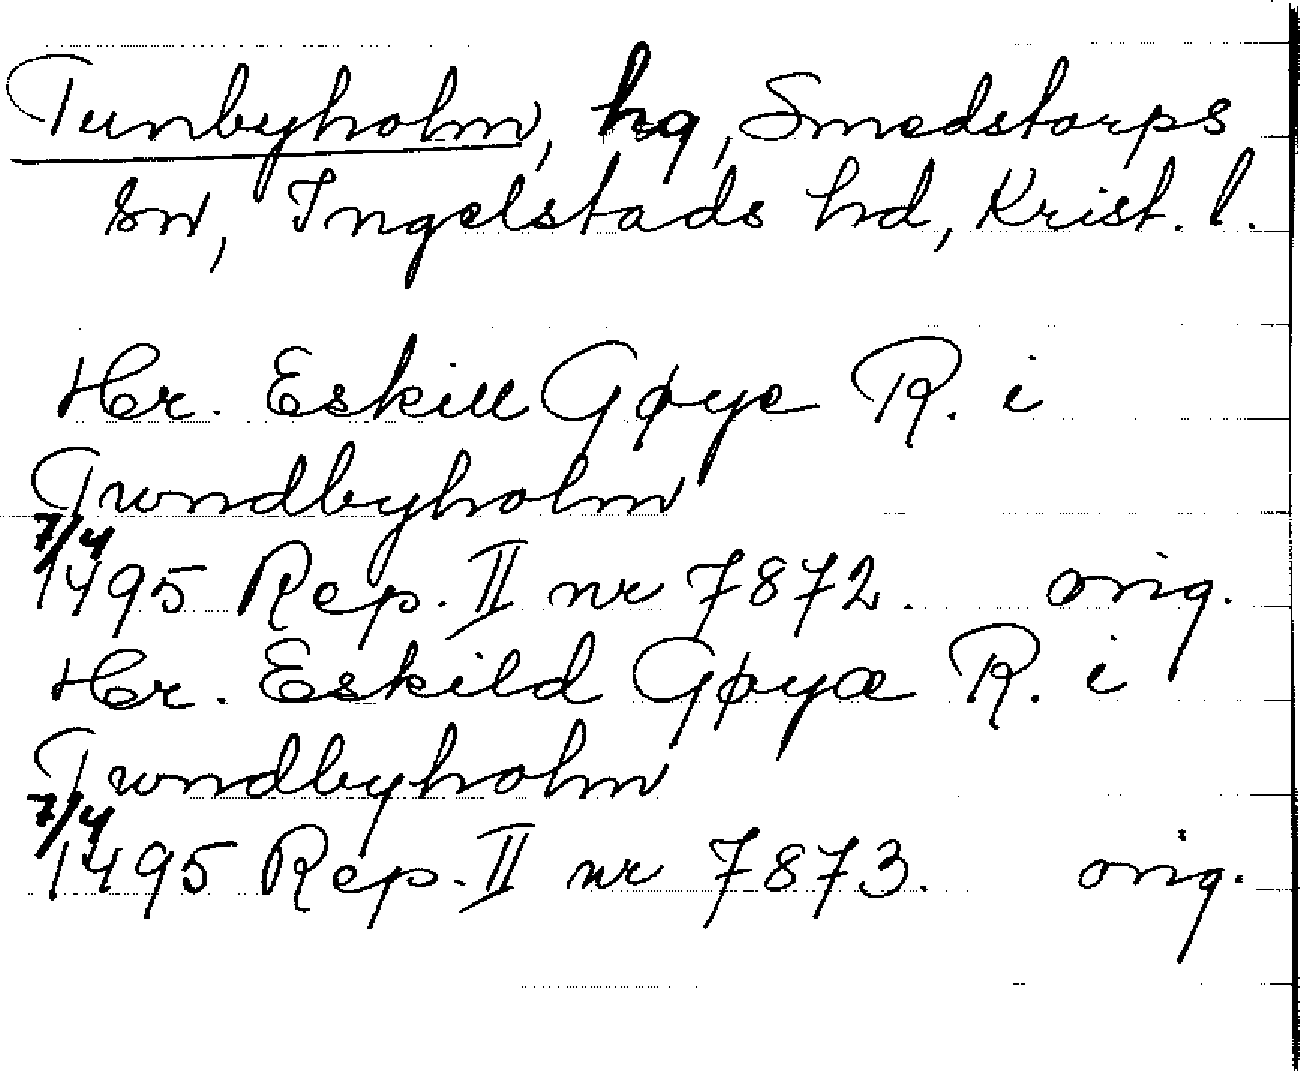 Tunbyholm, hg, Smedstorps
sn, Ingelstads hd, Krist. l.
Her. Eskill Gøye R. i
Twndbyholm
7/4
1495 Rep. II nr 7872. orig.
Her. Eskild Gøyæ R. i
Twndbyholm
7/4
1495 Rep. II nr 7873. orig.